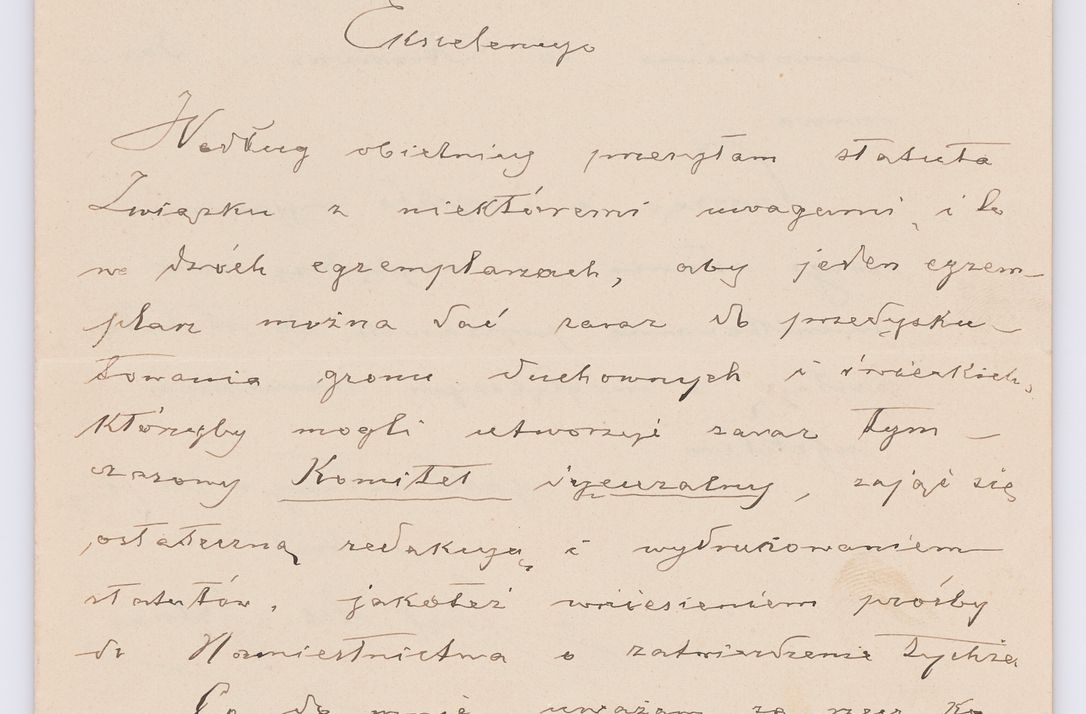 Ekscelencyo
Według obietnicy przesyłam statuta
Związku z niektóremi uwagami, i to
we dwóch egzemplarzach, aby jeden egzem-
plarz można dać zaraz do przedysku-
towania gronu duchownych i świeckich,
którzyby mogli utworzyć zaraz tym-
czasowy Komitet dyecezalny, zająć się
ostateczną redakcyą i wydrukowaniem
statutów, jakoteż wniesieniem prośby
do Namiestnictwa o zatwierdzenie tychże.
Co do mnie uważam za rzecz